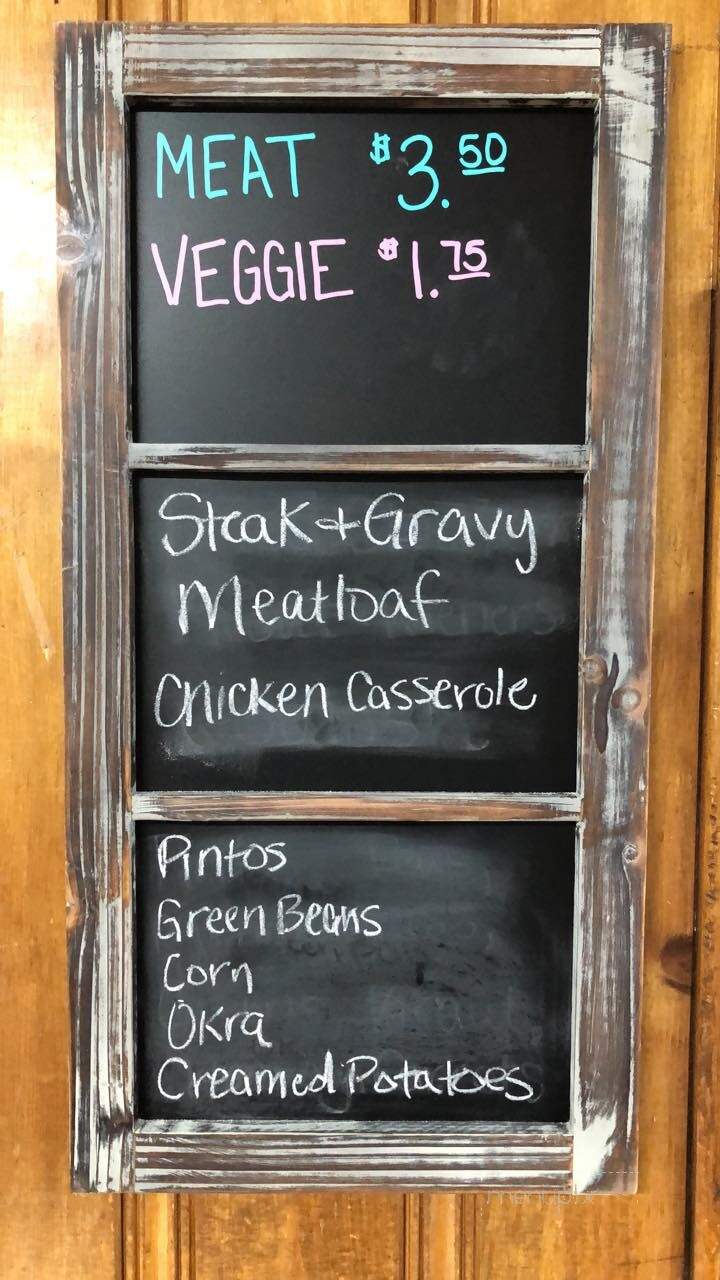 MEAT $3.50
VEGGIE $1.75
Steak + Gravy
Meatloaf
Chicken Casserole
Pintos
Green Beans
Corn
Okra
Creamed Potatoes